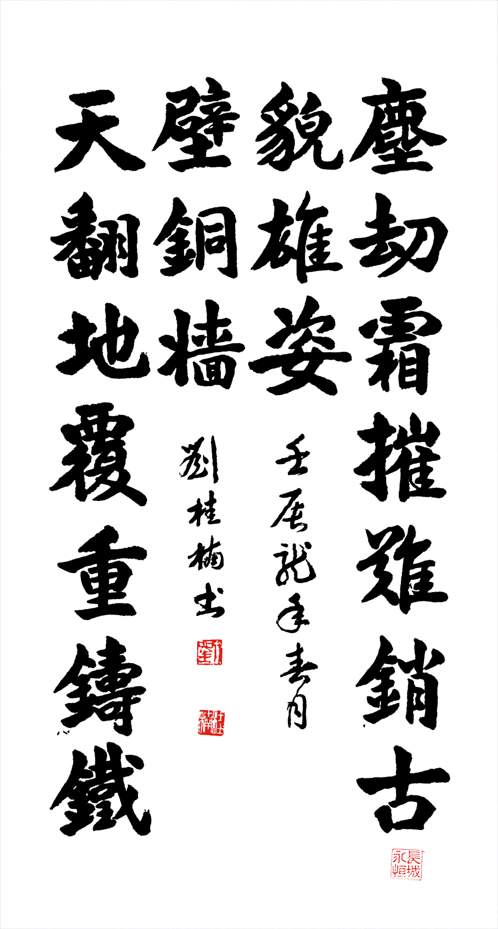 塵劫霜摧難銷古
貌雄姿
壬辰龍年春月
天翻地覆重鑄鐵
壁銅牆
劉桂楠书
長城
永恒